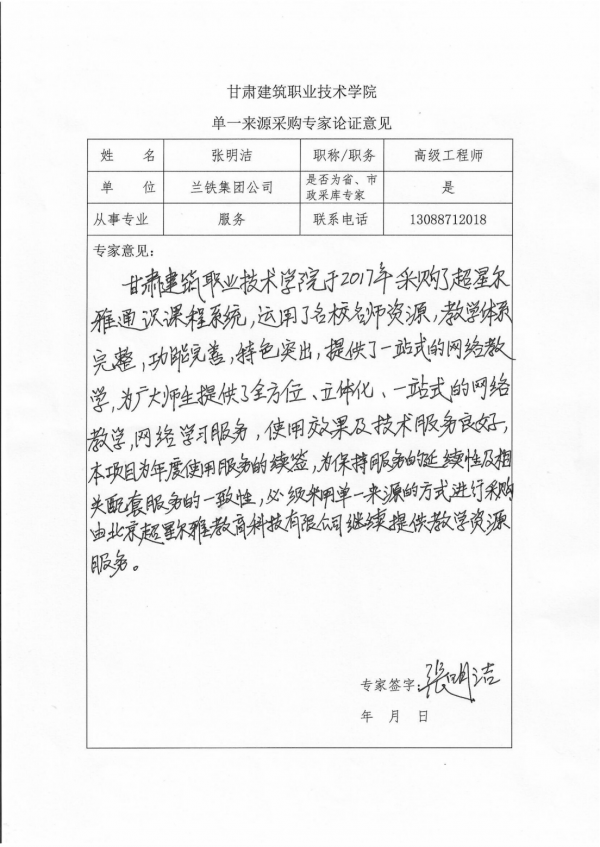 甘肃建筑职业技术学院
单一来源采购专家论证意见
姓 名 张明洁 职称/职务 高级工程师
单 位 兰铁集团公司 是否为省、市政采库专家 是
从事专业 服务 联系电话 13088712018
专家意见:
甘肃建筑职业技术学院于2017年采购了超星尔
雅通识课程系统,运用了名校名师资源,教学体系
完整,功能完善,特色突出,提供了一站式的网络教
学,为广大师生提供了全方位、立体化、一站式的网络
教学,网络学习服务,使用效果及技术服务良好,
本项目为年度使用服务的续签,为保持服务的延续性及相
关配套服务的一致性,必须采用单一来源的方式进行采购
由北京超星尔雅教育科技有限公司继续提供教学资源
服务。
专家签字:张明洁
年 月 日